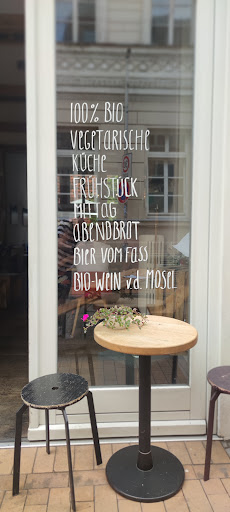 100% BIO
VEGETARISCHE
KÜCHE
FRÜHSTÜCK
MITTAG
ABENDBROT
BIER VOM FASS
BIO-WEIN v.d. MOSEL